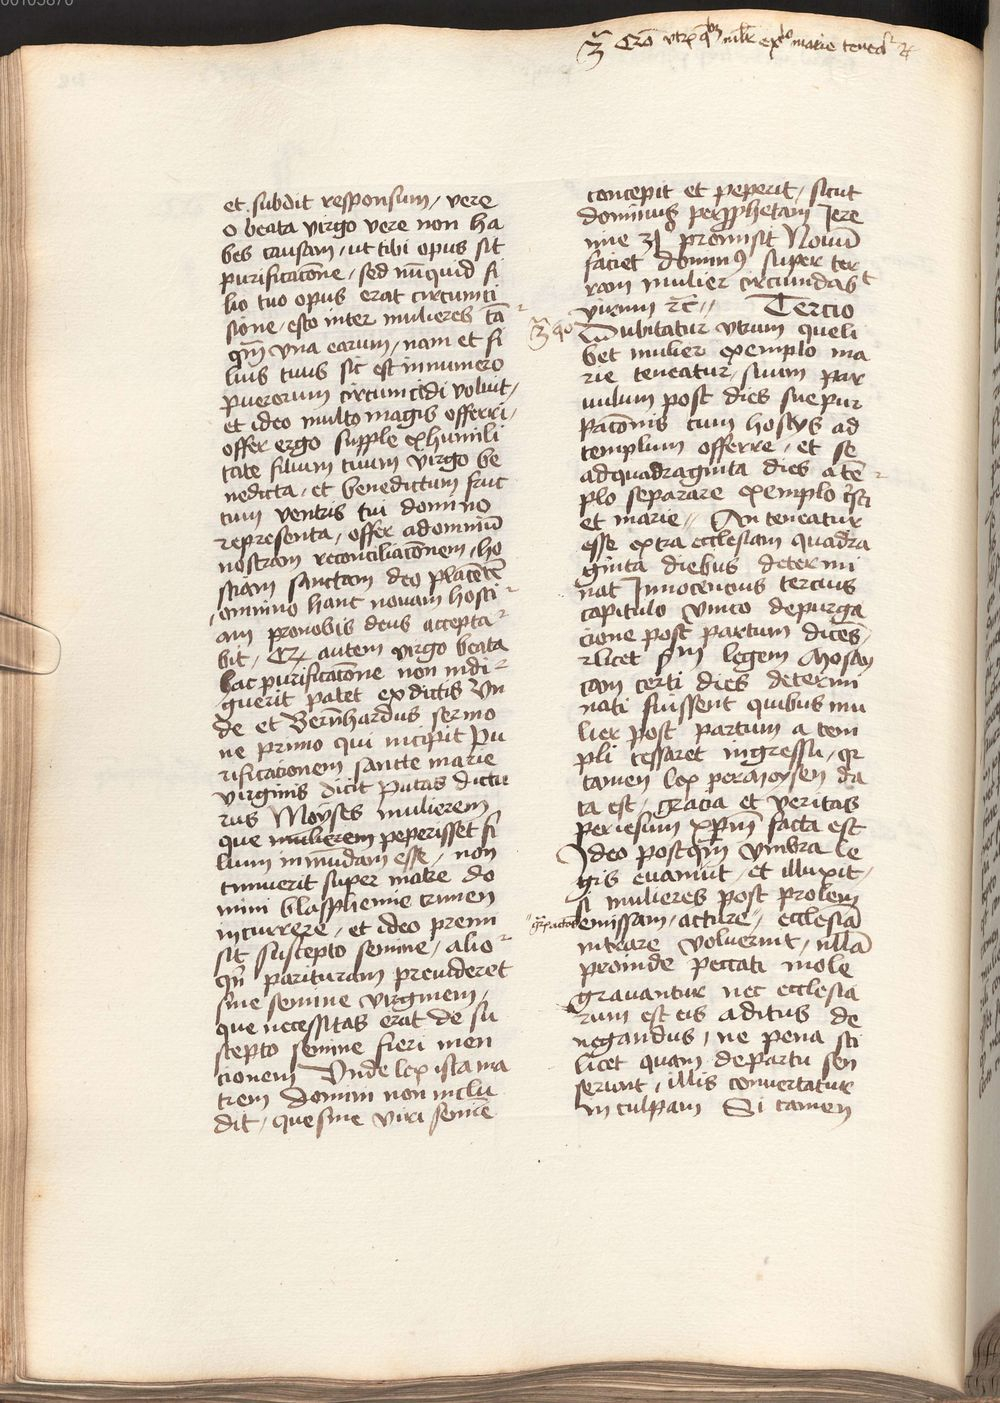 et subdit responsum / vere
o beata virgo vere non ha
bes causam / ut tibi opus sit
purificacōne / sed nūquid fi
lio tuo opus erat circumci
sione / esto inter mulieres tā
qm̄ vna earum / nam et fi
lius tuus sic est in numero
puerorum circumcidi voluit /
et ideo multo magis offerri /
offer ergo supple ex humili
tate filium tuum virgo be
nedicta / et benedictum fruc
tum ventris tui domino
representa / offer ad omniū
nostram reconciliacōnem / ho
stiam sanctam deo placētē
omnino hanc novam hosti
am pro nobis deus accepta
bit / autem virgo beata
hac purificatōne non indi
guerit patet ex dictis Vn
de et Bern̄hardus sermo
ne primo qui incipit Pu
rificationem sancte marie
virginis dicit Putas dictu
rus Moyses mulierem
que mulierem peperisset fi
lium inmūdam esse / non
timuerit super matre do
mini blasphemie crimen
incurrere / et ideo premi
sit suscepto semine / alio
qn̄ parituram preuideret
sine semine virginem /
que necessitas erat de su
scepto semine fieri men
cionem Vnde lex ista ma
trem domini non inclu
dit / que sine viri semīe
concepit et peperit / sicut
dominus per prophetam Iere
mie 31 promisit Nouū
faciet dominus super ter
ram mulier circumdabt
virum rc̄ // Tercio
Dubitatur vtrum queli
bet mulier exemplo ma
rie teneatur / suum par
uulum post dies sue pur
gacōnis cum hostys ad
templum offerre / et se
ad quadraginta dies a tē
plo separare exemplo
et marie // An teneatur
esse extra ecclesiam quadra
ginta diebus determi
nat Innocencius tercius
capitulo vnico de purga
cione post partum dicēs /
licet sm̄ legem Mosay
cam certi dies determi
nati fuissent quibus mu
lier post partum a tem
pli cessaret ingressu / qr
tamen lex per moysen da
ta est / gracia et veritas
per iesum xp̄m facta est
Ideo postqm̄ vmbra le
gis euanuit / et illuxit /
si mulieres post prolem
emissam / acture // ecclesiā
intrare voluerint / nullā
proinde peccati mole
grauantur nec ecclesia
rum est eis aditus de
negandus / ne pena sci
licet quam de partu sen
serunt / illis convertatur
in culpam Si tamen